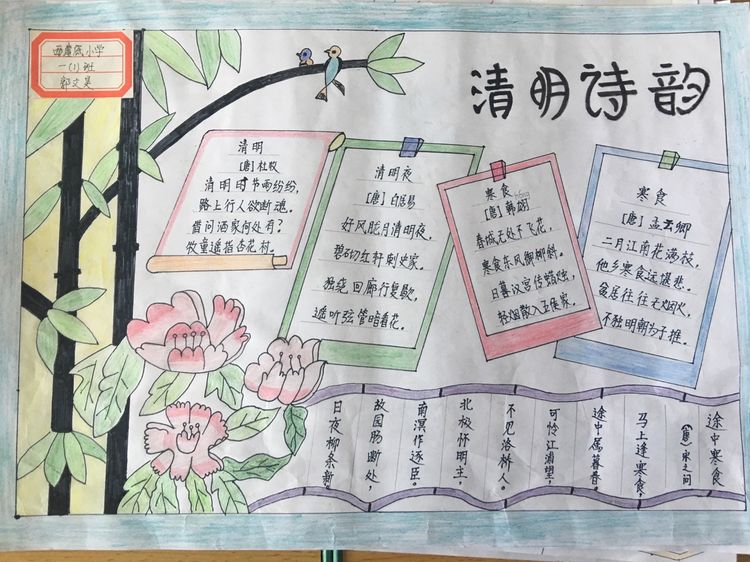 西屋底小学
一(1)班
郭文昊
清明诗韵
清明
[唐]杜牧
清明时节雨纷纷,
路上行人欲断魂。
借问酒家何处有?
牧童遥指杏花村。
清明夜
[唐]白居易
好风胧月清明夜,
碧砌红轩刺史家。
独绕回廊行复歇,
遥听弦管暗看花。
寒食
[唐]韩翃
春城无处不飞花,
寒食东风御柳斜。
日暮汉宫传蜡烛,
轻烟散入五侯家。
寒食
[唐]孟云卿
二月江南花满枝,
他乡寒食远堪悲。
贫居往往无烟火,
不独明朝为子推。
途中寒食
[唐]宋之问
马上逢寒食,
途中属暮春。
可怜江浦望,
不见洛桥人。
北极怀明主,
南溟作逐臣。
故园肠断处,
日夜柳条新。